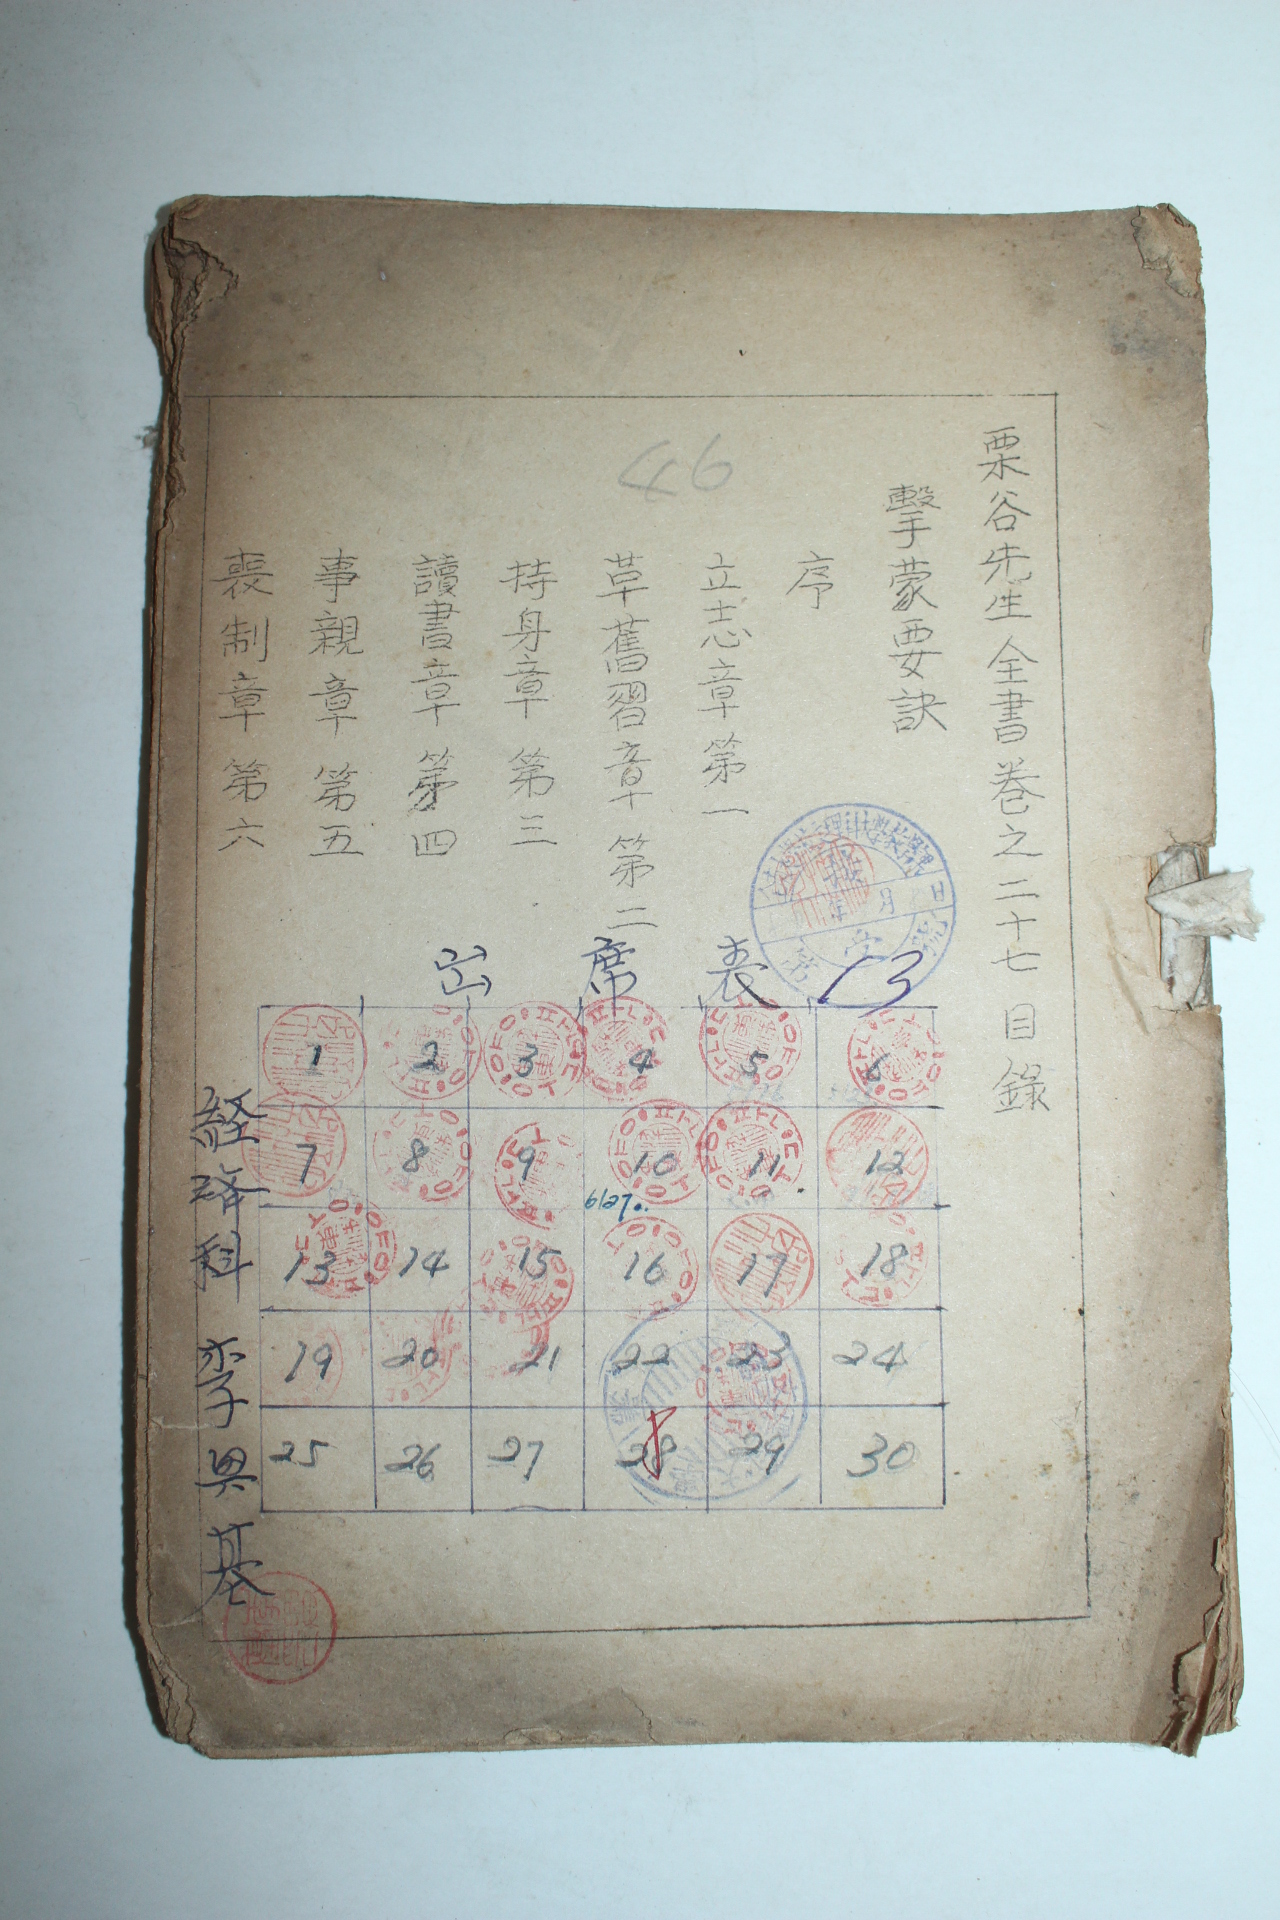 栗谷先生全書卷之二十七 目錄
擊蒙要訣
序
立志章 第一
革舊習章 第二
持身章 第三
讀書章 第四
事親章 第五
喪制章 第六
46
出席表
13
1 2 3 4 5 6
7 8 9 10 11 12
13 14 15 16 17 18
19 20 21 22 23 24
25 26 27 28 29 30
経路科 李興基